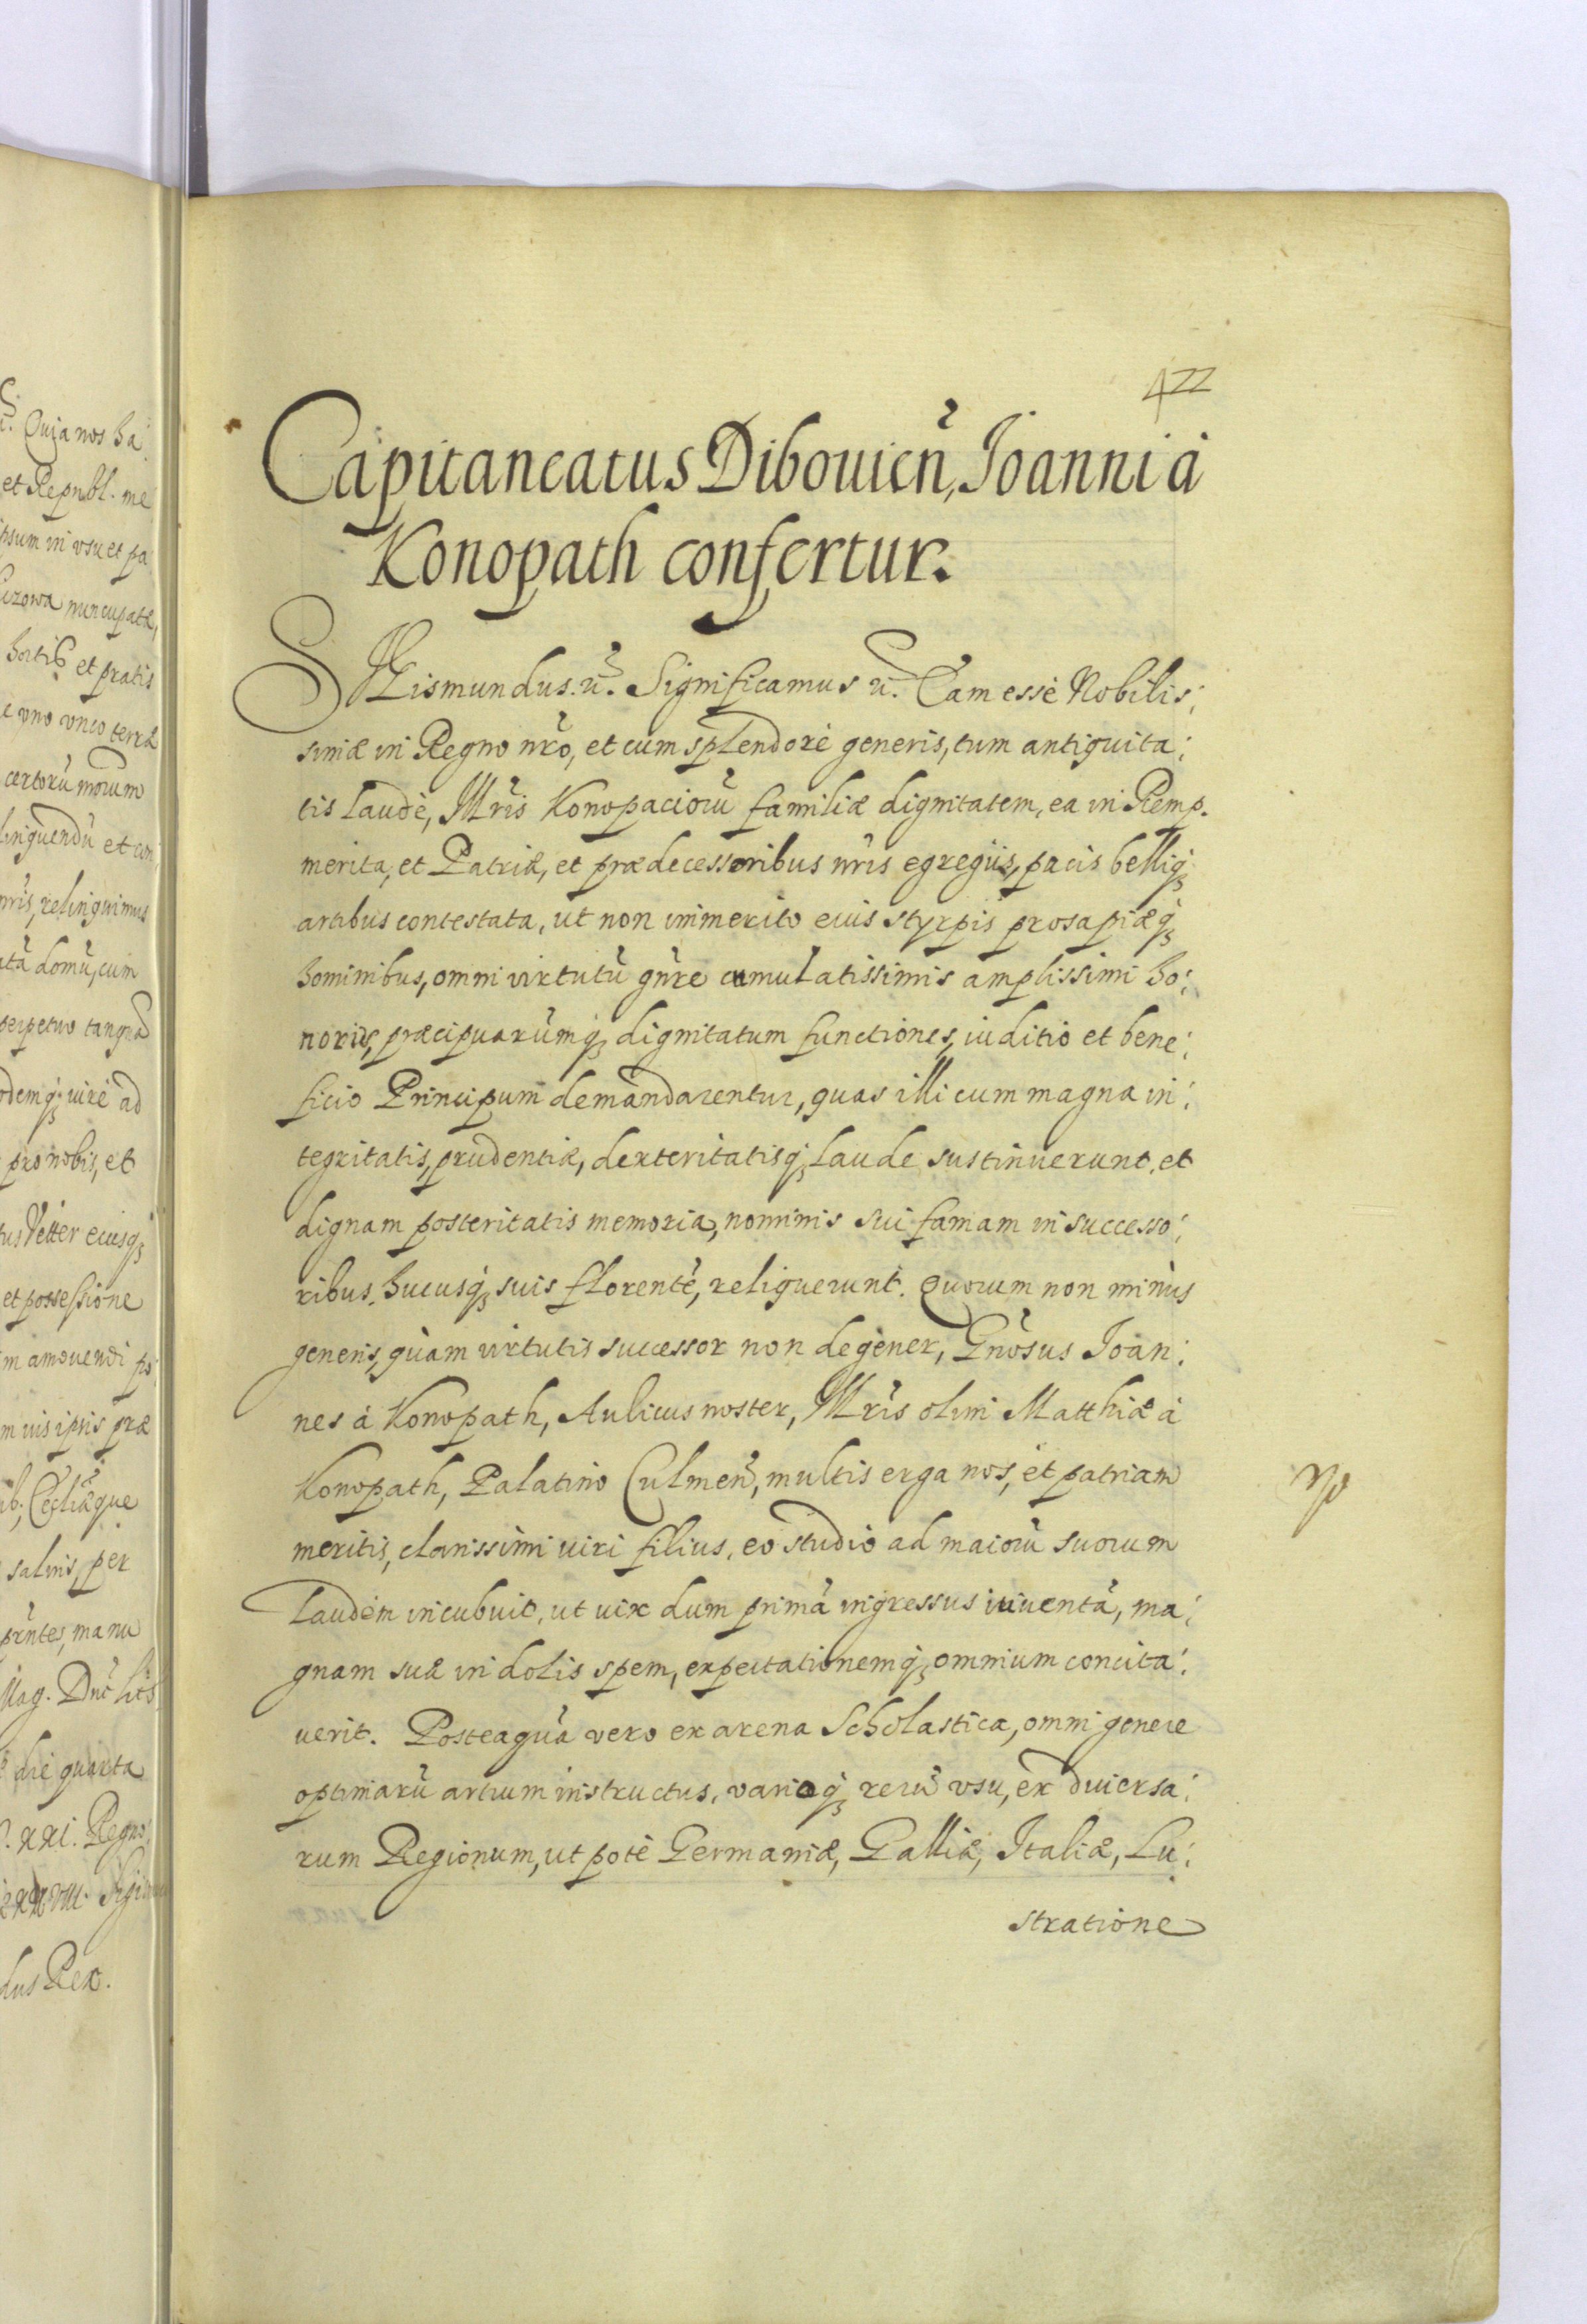 ĩ. Quia nos ha
et Republ. me
ipsum in vsu et pa
nuncupatæ,
hortib9 et pratis
e vno vnco terræ
certorũ morum
linquendũ et con
nr̃is, relinquimus
atã domũ, cum
perpetuo tang
odemq́ȝ iure ad
pro nobis, et
tus Vetter eiusq́ȝ
et possessione
m amouendi po
m uis ipsis præ
ub. Eccliæque
salinis, per
prñtes, manu
Mag. Dnc̃ Lit̃s
die quarta
XXI. Regno
XXXVIII. Sigis
dus Rex.
422
Capitaneatus Dibouien̄, Joanni à
Konopath confertur.
SIGismundus. ĩc̃. Significamus ĩc̃. Eam esse Nobilis:
simæ in Regno nr̃o, et cum splendore generis, tum antiquita:
tis laude, Illr̃is Konopaciorũ familiæ dignitatem, ea in Remp.
merita, et Patriæ, et prædecessoribus nr̃is egregiis, pacis belliq́ȝ
artibus contestata, ut non immerito eius styrpis prosapiæq́ȝ
hominibus, omni virtutũ gñre cumulatissimis amplissimi ho:
noris, præcipuarumq́ȝ dignitatum functiones, iuditio et bene:
ficio Principum demandarentur, quas illi cum magna in:
tegritatis, prudentiæ, dexteritatisq́ȝ laude sustinuerunt, et
dignam posteritatis memoria, nominis sui famam in successo:
ribus, hucusq́ȝ suis florentẽ, reliquerunt. Quorum non minùs
generis, quàm virtutis successor non degener, Gñosus Ioan:
nes à Konopath, Aulicus noster, Illr̃is olim Matthiæ à
Konopath, Palatino Culmen̄, multis erga nos, et patriam
meritis, clarissimi uiri filius, eo studio ad maiorũ suorum
laudem incubuit, ut uix dum primã ingressus iuuentã, ma:
gnam suæ indolis spem, expectationemq́ȝ omnium concita:
uerit. Posteaquã vero ex arena Scholastica, omni genere
optimarũ artium instructus, varioq́ȝ rerũ vsu, ex diuersa:
rum Regionum, ut pote Germaniæ, Galliæ, Italiæ, Lu:
stratione